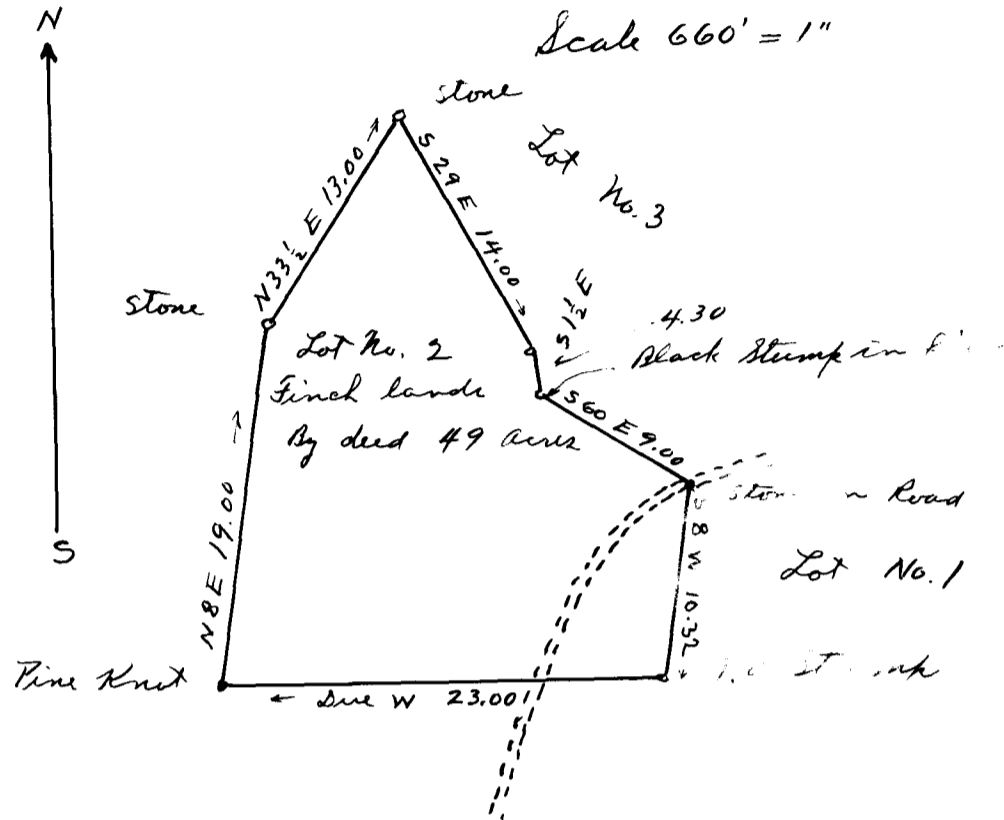 N
Scale 660' = 1"
stone
Lot No. 3
N 33½ E 13.00
S 29 E 14.00
S 1½ E
4.30
stone
Lot No. 2
Black Stump in
Finch lands
By deed 49 acres
S 60 E 9.00
Road
S
N 8 E 19.00
S 8 W 10.32
Lot No. 1
Pine Knot
Due W 23.00